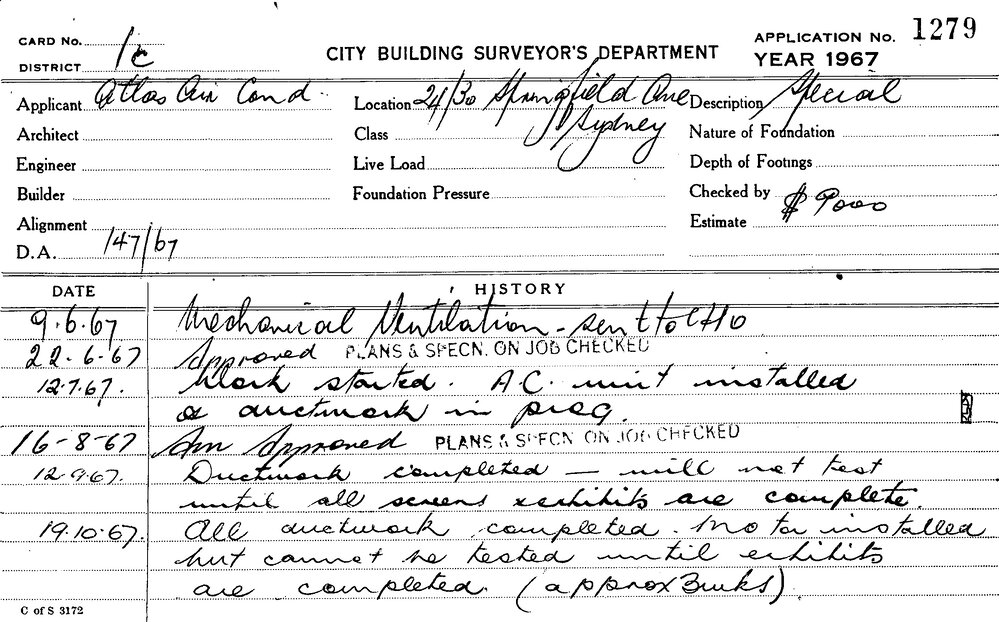 CARD No. 1c
DISTRICT
CITY BUILDING SURVEYOR'S DEPARTMENT
APPLICATION No. 1279
YEAR 1967
Applicant Atlas Air Cond.
Location 24/30 Springfield Ave Sydney
Description Special
Architect
Class
Nature of Foundation
Engineer
Live Load
Depth of Footings
Builder
Foundation Pressure
Checked by
Alignment
Estimate $9000
D.A. 147/67
DATE HISTORY
9.6.67 Mechanical Ventilation - sent to CHO
22-6-67 Approved PLANS & SPECN. ON JOB CHECKED
12.7.67. Work started. A.C. unit installed
& ductwork in prog.
16-8-67 Am Approved PLANS & SPECN ON JOB CHECKED
12.9.67. Ductwork completed — will not test
until all screens & exhibits are complete.
19.10.67. All ductwork completed. Motor installed
but cannot be tested until exhibits
are completed. (approx 3 wks).
C of S 3172